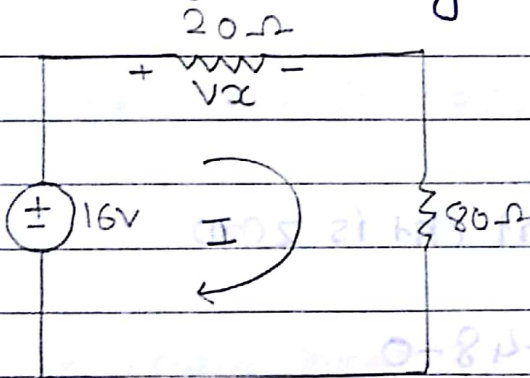 20Ω
+ Vx -
+
- 16V
I
80Ω